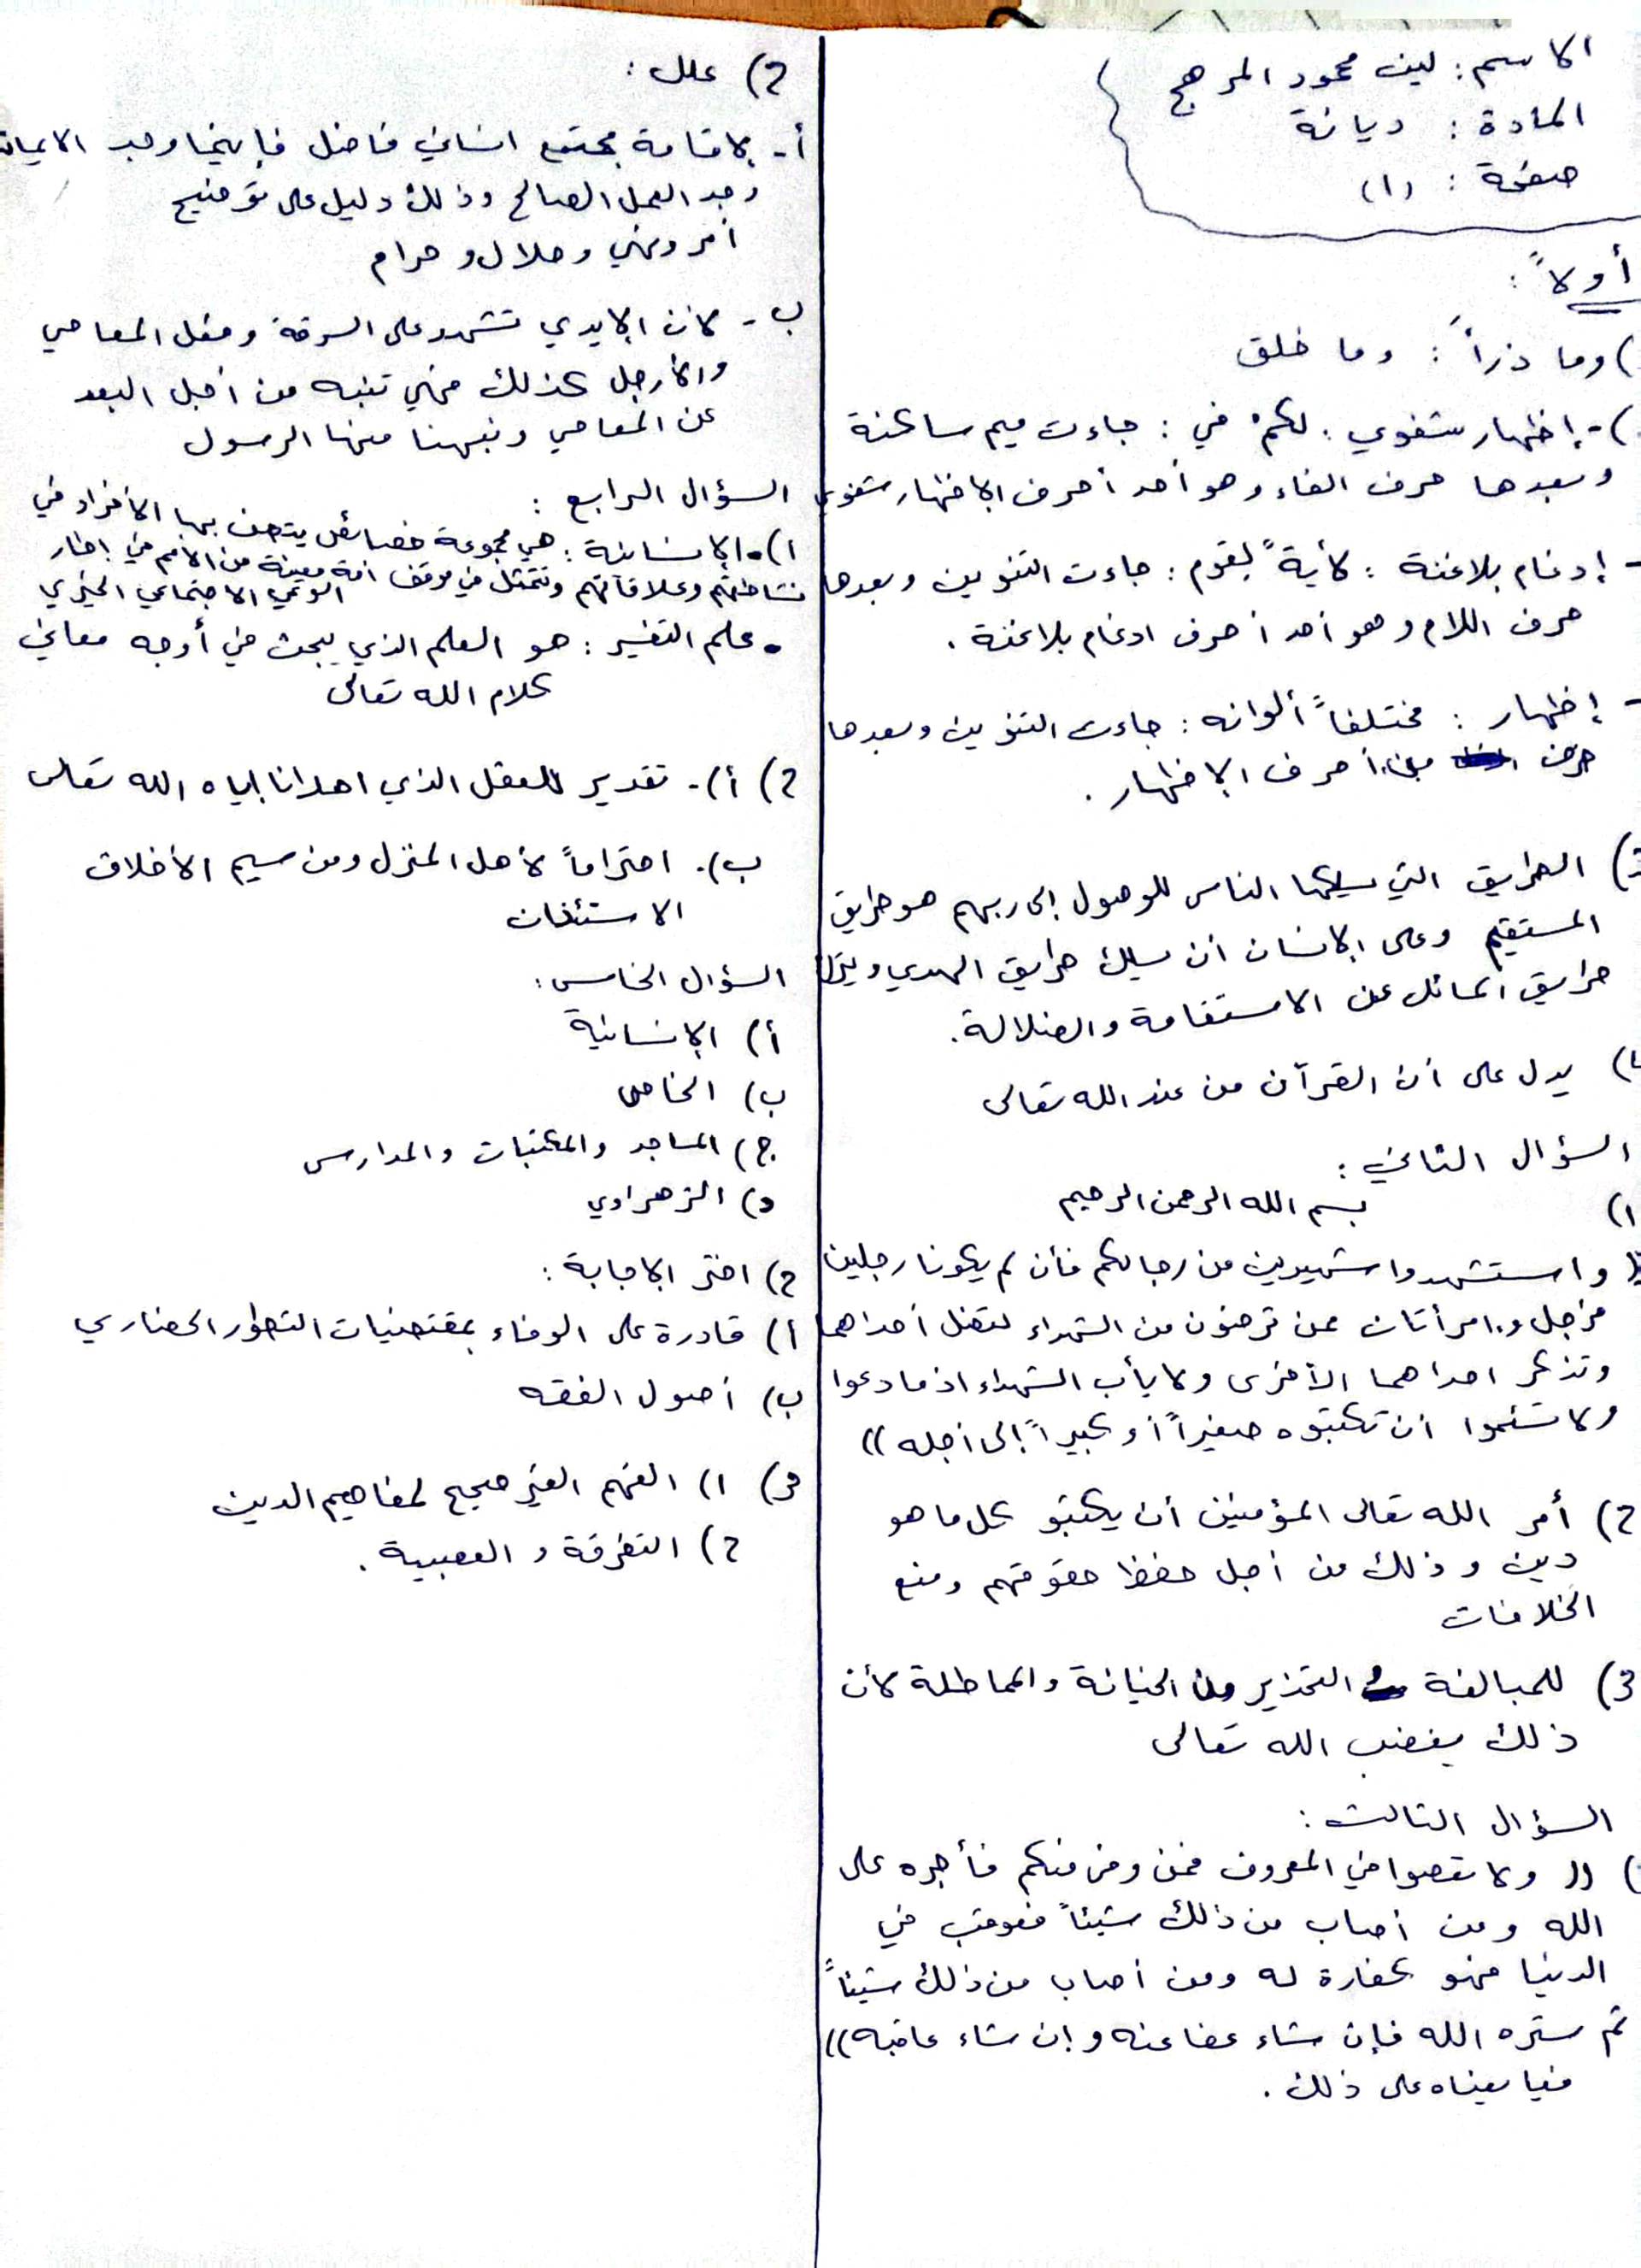 الاسم: لين محمود المرهج
المادة: ديانة
صفحة: (١)
أولاً:
) وما ذرأ: وما خلق
)- إظهار شفوي: لكمْ في: جاءت ميم ساكنة
وبعدها حرف الفاء وهو أحد أحرف الإظهار شفوي
- إدغام بلاغنة: لأيةً لقوم: جاءت التنوين وبعدها
حرف اللام وهو أحد أحرف ادغام بلاغنة.
- إظهار: مختلفاً ألوانه: جاءت التنوين وبعدها
حرف من أحرف الإظهار.
3) الطريق التي يسلكها الناس للوصول إلى ربهم هو طريق
المستقيم وعلى الإنسان أن يسلك طريق الهدي ويترك
طريق المائل عن الاستقامة والضلالة.
4) يدل على أن القرآن من عند الله تعالى
السؤال الثاني:
١) بسم الله الرحمن الرحيم
واستشهدوا شهيدين من رجالكم فأن لم يكونا رجلين
فرجل وامرأتان ممن ترضون من الشهداء لتضل أحداهما
وتذكر احداهما الأخرى ولا يأب الشهداء اذ ما دعوا
ولا تسئموا أن تكتبوه صغيراً أو كبيراً إلى أجله))
2) أمر الله تعالى المؤمنين أن يكتبو كل ما هو
دين وذلك من أجل حفظ حقوقهم ومنع
الخلافات
3) للمبالغة التحذير من الخيانة والمماطلة لأن
ذلك يغضب الله تعالى
السؤال الثالث:
) (( ولا تعصوا في المعروف فمن وفى منكم فأجره على
الله ومن أصاب من ذلك شيئاً فعوقب في
الدنيا فهو كفارة له ومن أصاب من ذلك شيئاً
ثم ستره الله فإن شاء عفا عنه وإن شاء عاقبه))
فبايعناه على ذلك.
2) علل:
أ- لإقامة مجتمع انساني فاضل فإينما وجد الايمان
وجد العمل الصالح وذلك دليل على توضيح
أمر ونهي وحلال وحرام
ب- لأن الإيدي تشهد على السرقة وفعل المعاصي
والأرجل كذلك فهي تنبه من أجل البعد
عن المعاصي ونبهنا منها الرسول
السؤال الرابع:
١)• الإنسانية: هي مجموعة خصائص يتصف بها الأفراد في
نشاطهم وعلاقاتهم وتتمثل في موقف أمة معينة من الأمم في إطار
الوعي الاجتماعي الخيري
• علم التفسير: هو العلم الذي يبحث في أوجه معاني
كلام الله تعالى
2) أ)- تقدير للعقل الذي اهدانا إياه الله تعالى
ب)- احتراماً لأهل المنزل ومن سيم الأخلاق
الاستئذان
السؤال الخامس:
أ) الإنسانية
ب) الخاص
ج) المساجد والمكتبات والمدارس
د) الزهراوي
2) اختر الإجابة:
أ) قادرة على الوفاء بمقتضيات التطور الحضاري
ب) أصول الفقه
3) ١) الفهم الغير صحيح لمفاهيم الدين
2) التفرقة والعصبية.